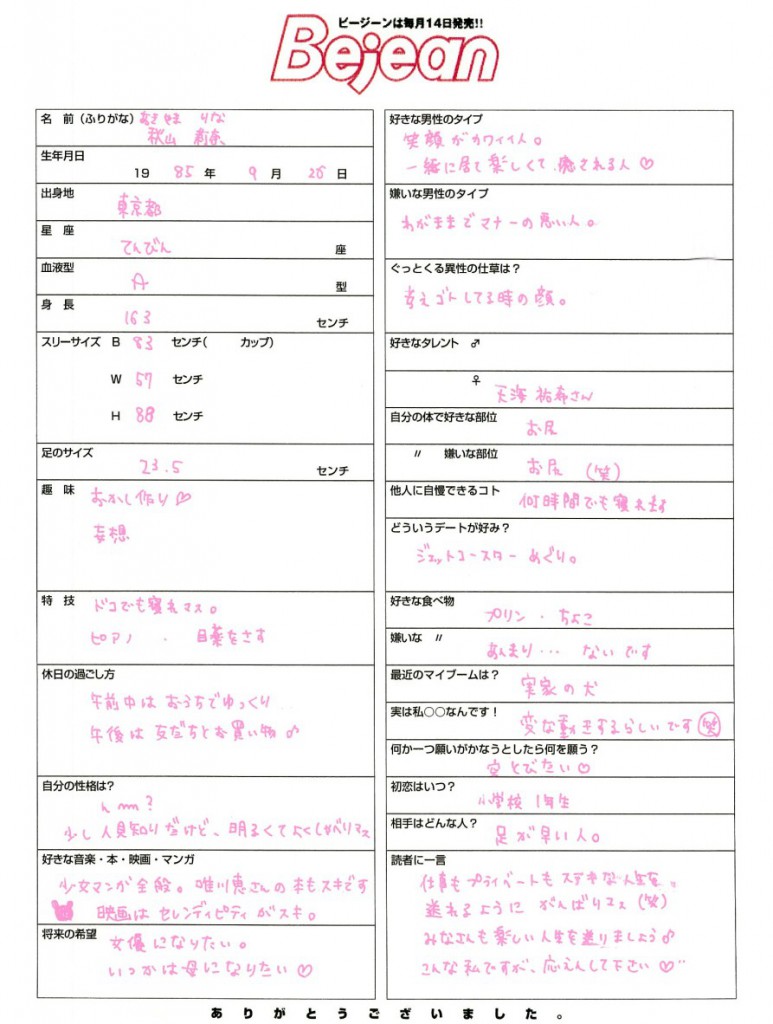 ビージーンは毎月14日発売!!
Bejean
名 前(ふりがな) あきやま りな
秋山 莉奈
生年月日
19 85 年 9 月 26 日
出身地
東京都
星 座
てんびん 座
血液型
A 型
身 長
163 センチ
スリーサイズ B 83 センチ( カップ)
W 57 センチ
H 88 センチ
足のサイズ
23.5 センチ
趣 味 おかし作り♡
妄想
特 技 ドコでも寝れマス。
ピアノ ・ 目薬をさす
休日の過ごし方
午前中はおうちでゆっくり
午後は友だちとお買い物♪
自分の性格は?
んー?
少し人見知りだけど、明るくてよくしゃべりマス
好きな音楽・本・映画・マンガ
少女マンガ全般。唯川恵さんの本もスキです
映画はセレンディピティがスキ。
将来の希望 女優になりたい。
いつかは母になりたい♡
好きな男性のタイプ
笑顔がカワイイ人。
一緒に居て楽しくて、癒される人♡
嫌いな男性のタイプ
わがままでマナーの悪い人。
ぐっとくる異性の仕草は?
考えゴトしてる時の顔。
好きなタレント ♂
♀
天海祐希さん
自分の体で好きな部位 お尻
〃 嫌いな部位 お尻(笑)
他人に自慢できるコト 何時間でも寝れます
どういうデートが好み?
ジェットコースターめぐり。
好きな食べ物
プリン・ちょこ
嫌いな 〃
あんまり… ないです
最近のマイブームは?
実家の犬
実は私〇〇なんです!
変な動きするらしいです(笑)
何か一つ願いがかなうとしたら何を願う?
空とびたい♡
初恋はいつ?
小学校1年生
相手はどんな人?
足が早い人。
読者に一言
仕事もプライベートもステキな人生を。
送れるように がんばりマス(笑)
みなさんも楽しい人生を送りましょう♪
こんな私ですが、応えんして下さい♡
ありがとうございました。